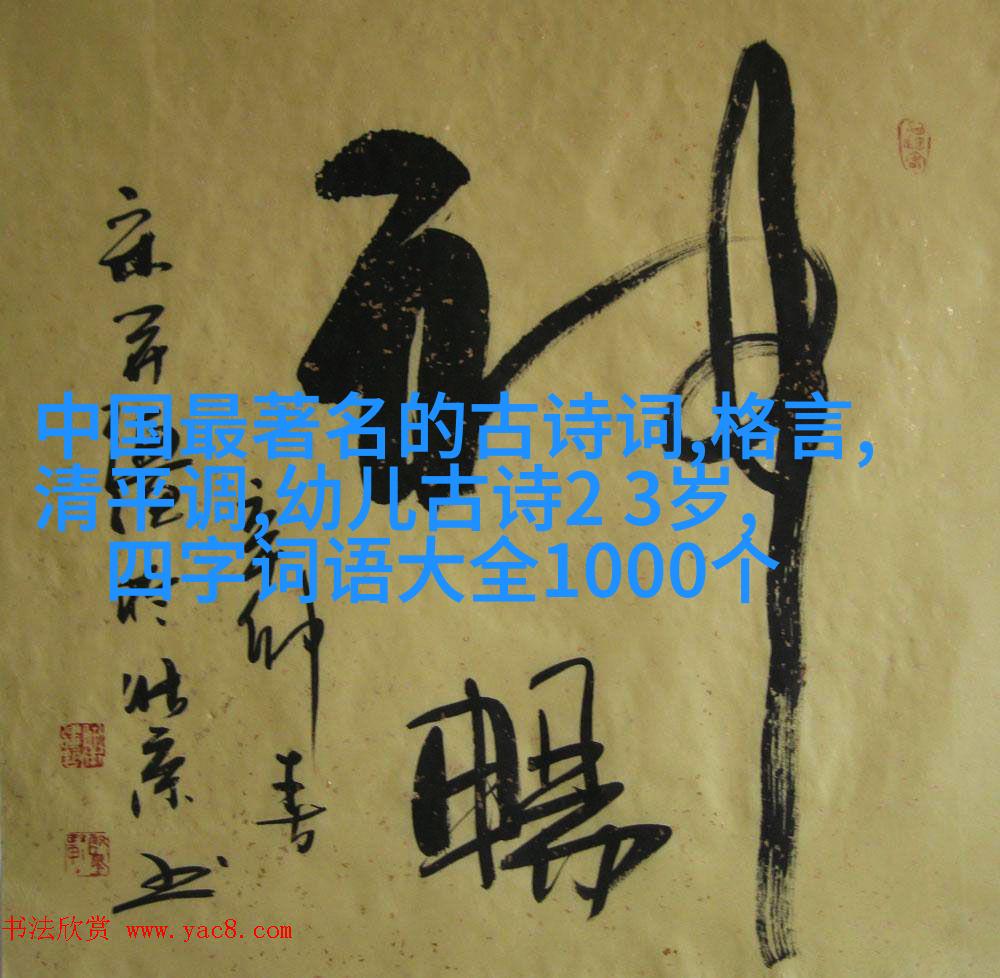 神暢
辛卯春
於北京书
中国最著名的古诗词,格言,
清平调,幼儿古诗2 3岁,
四字词语大全1000个
书法欣赏 www.yac8.com